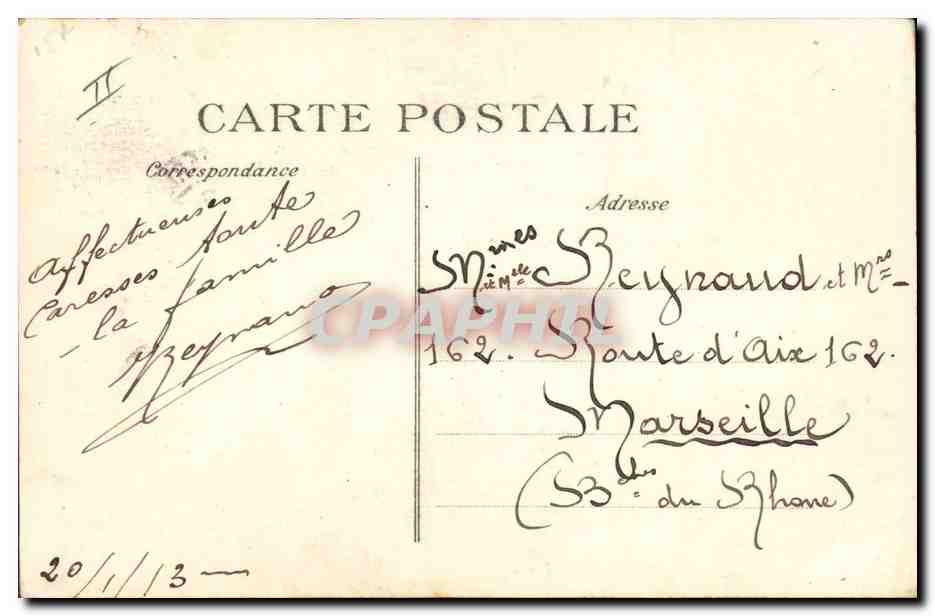 II
CARTE POSTALE
Correspondance
Affectueuses
Caresses toute
la famille
Reynaud
20/1/13
Adresse
Mmes et Melle Reynaud et Mrs
162. Route d'Aix 162.
Marseille
(Bches du Rhone)
CPAPHIL